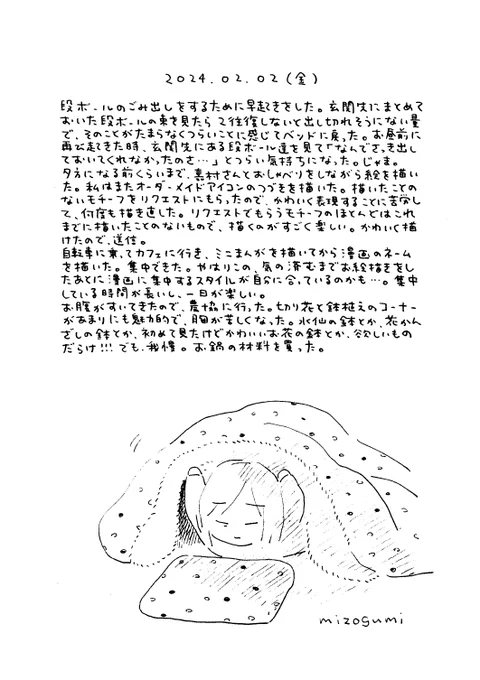 2024.02.02(金)
段ボールのごみ出しをするために早起きをした。玄関先にまとめて
おいた段ボールの束を見たら2往復しないと出し切れそうにない量
で、そのことがたまらなくつらいことに感じてベッドに戻った。お昼前に
再び起きた時、玄関先にある段ボール達を見て「なんでさっき出し
ておいてくれなかったのさ…」とつらい気持ちになった。じゃま。
夕方になる前くらいまで、真村さんとおしゃべりをしながら絵を描い
た。私はまたオーダーメイドアイコンのつづきを描いた。描いたことの
ないモチーフをリクエストにもらったので、かわいく表現することに苦労し
て、何度も描き直した。リクエストでもらうモチーフのほとんどはこれ
までに描いたことのないもので、描くのがすごく楽しい。かわいく描
けたので、送信。
自転車に乗ってカフェに行き、ミニまんがを描いてから漫画のネーム
を描いた。集中できた。やはりこの、気の済むまでお絵描きをし
たあとに漫画に集中するスタイルが自分に合っているのかも…。集中
している時間が長いし、一日が楽しい。
お腹がすいてきたので、農協に行った。切り花と鉢植えのコーナー
があまりにも魅力的で、胸が苦しくなった。水仙の鉢とか、花かん
ざしの鉢とか、初めて見たけどかわいいお花の鉢とか、欲しいもの
だらけ!!!でも、我慢。お鍋の材料を買った。
mizogumi